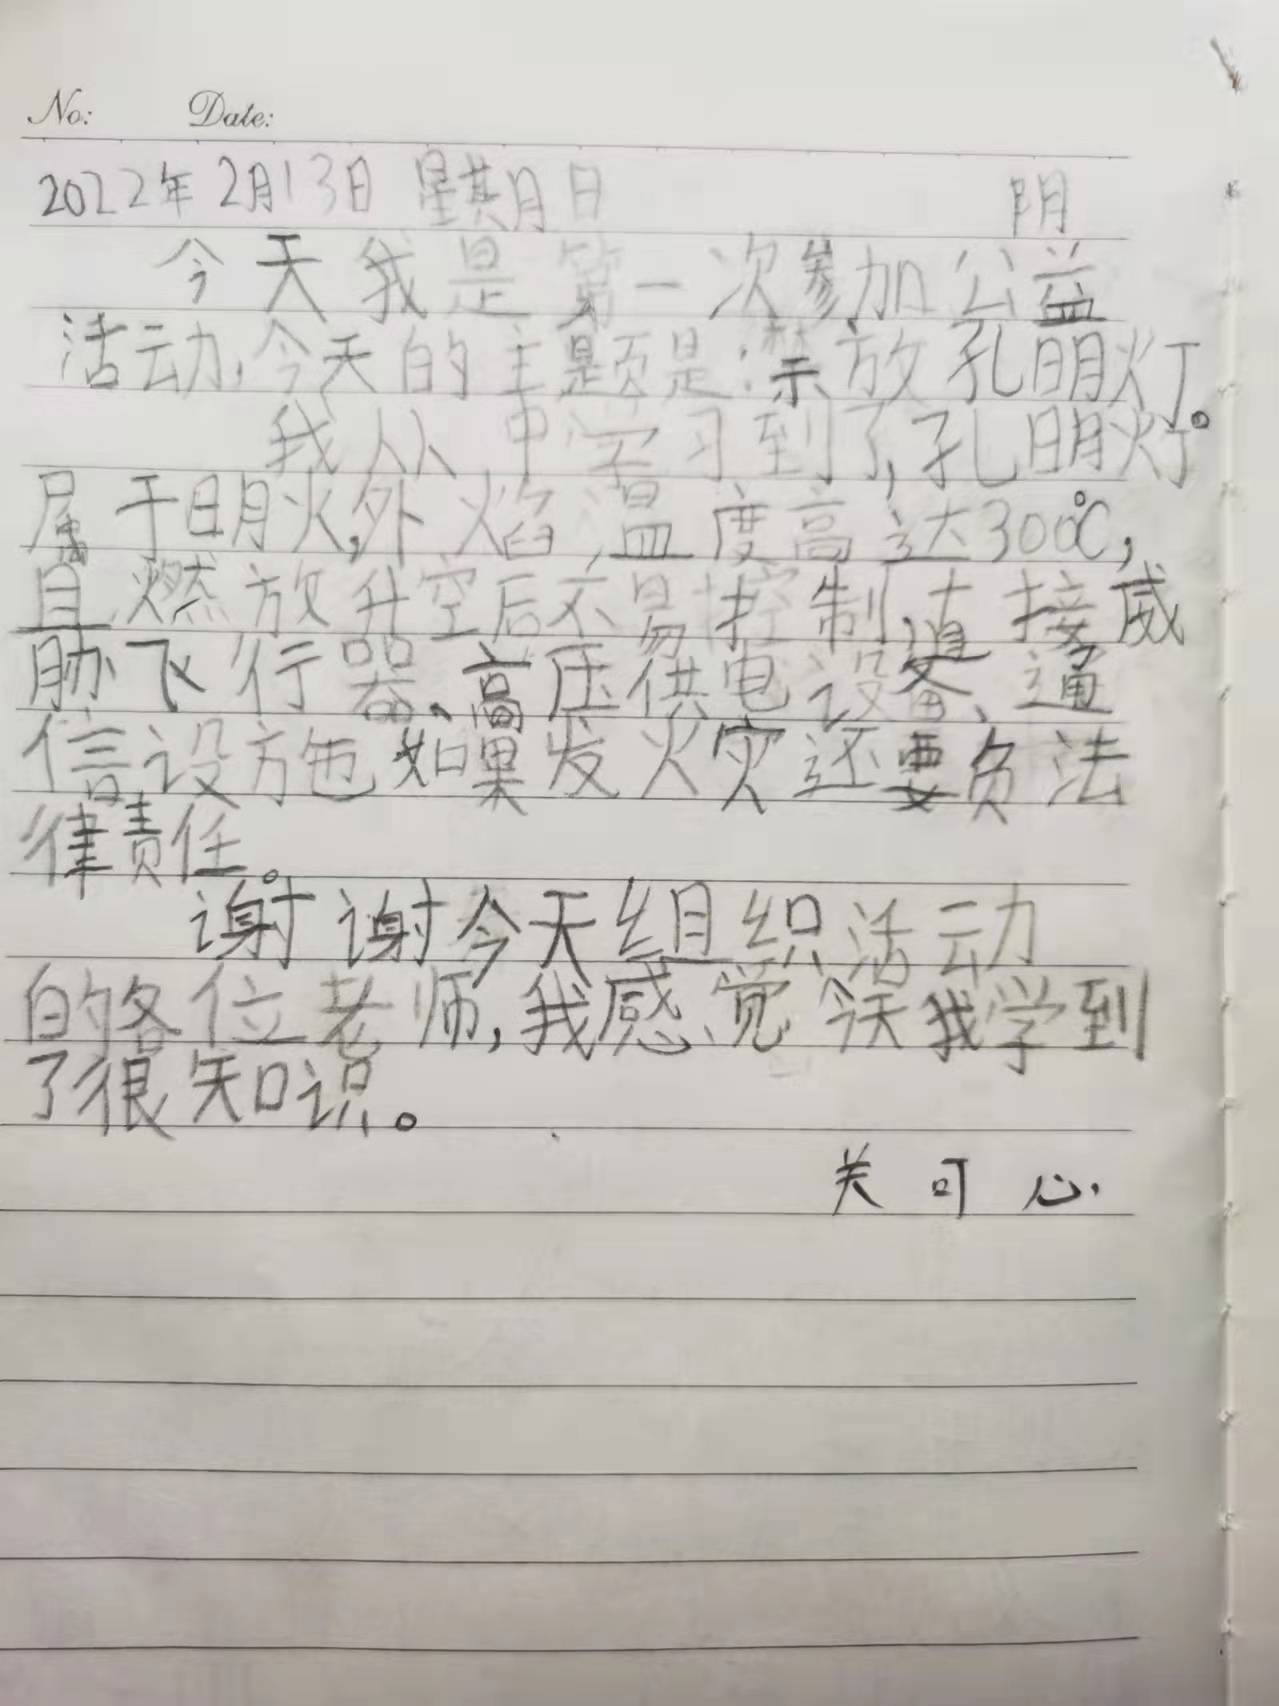 No: Date:
2022年2月13日 星期日 阴
今天我是第一次参加公益
活动,今天的主题是:禁放孔明灯。
我从中学习到了,孔明灯
属于明火,外焰温度高达300℃,
且燃放升空后不易控制,直接威
胁飞行器、高压供电设备、通
信设施如果发火灾还要负法
律责任。
谢谢今天组织活动
的各位老师,我感觉今天我学到
了很知识。
关可心.